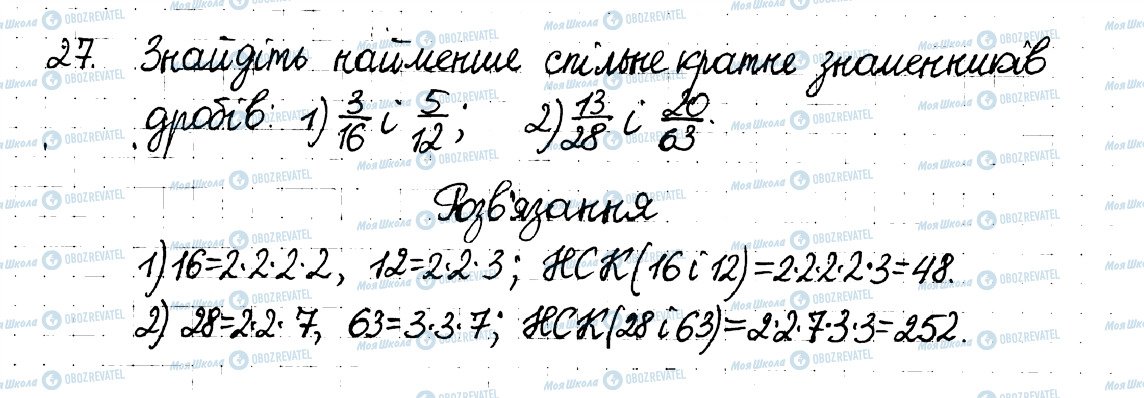 27. Знайдіть найменше спільне кратне знаменників
дробів: 1) 3/16 і 5/12; 2) 13/28 і 20/63.
Розв'язання
1) 16=2·2·2·2, 12=2·2·3; НСК(16 і 12)=2·2·2·2·3=48.
2) 28=2·2·7, 63=3·3·7; НСК(28 і 63)=2·2·7·3·3=252.